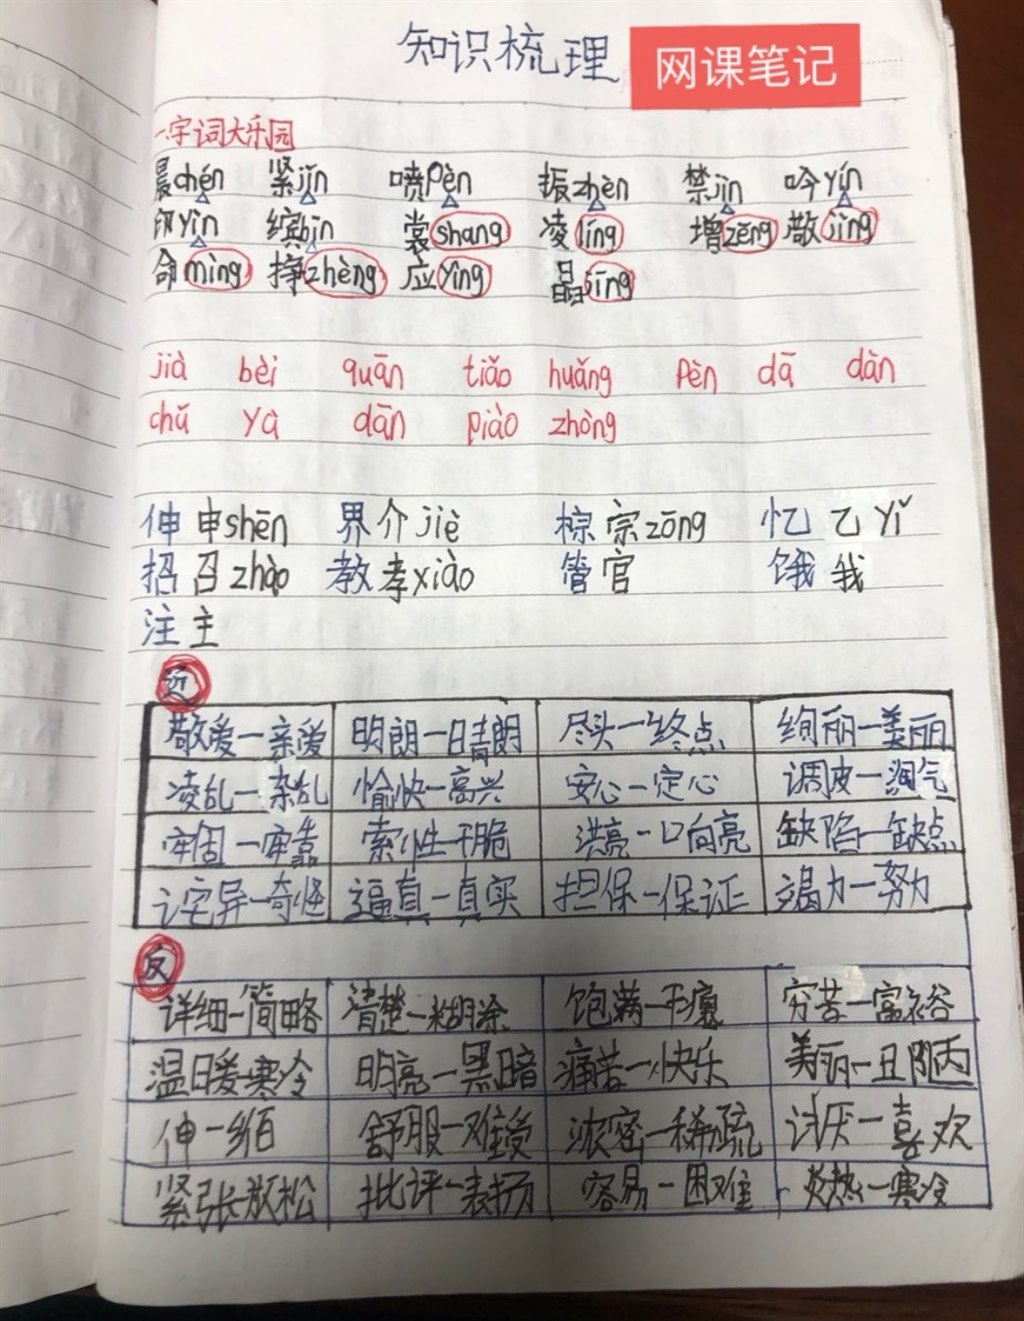 知识梳理 网课笔记
一.字词大乐园
晨chén 紧jǐn 喷pèn 振zhèn 禁jìn 吟yín
印yìn 缤bīn 裳shang 凌líng 增zēng 敬jìng
命mìng 挣zhèng 应yīng 晶jīng
jià bèi quān tiǎo huǎng pèn dā dàn
chǔ yà dān piào zhòng
伸 申shēn 界 介 jiè 棕 宗zōng 忆 乙 yǐ
招 召 zhào 教 孝xiào 管 官 饿 我
注 主
近
敬爱—亲爱 明朗—晴朗 尽头—终点 绚丽—美丽
凌乱—杂乱 愉快—高兴 安心—定心 调皮—淘气
牢固—牢靠 索性—干脆 洪亮—响亮 缺陷—缺点
诧异—奇怪 逼真—真实 担保—保证 竭力—努力
反
详细—简略 清楚—糊涂 饱满—干瘪 穷苦—富裕
温暖—寒冷 明亮—黑暗 痛苦—快乐 美丽—丑陋
伸—缩 舒服—难受 浓密—稀疏 讨厌—喜欢
紧张—放松 批评—表扬 容易—困难 炎热—寒冷